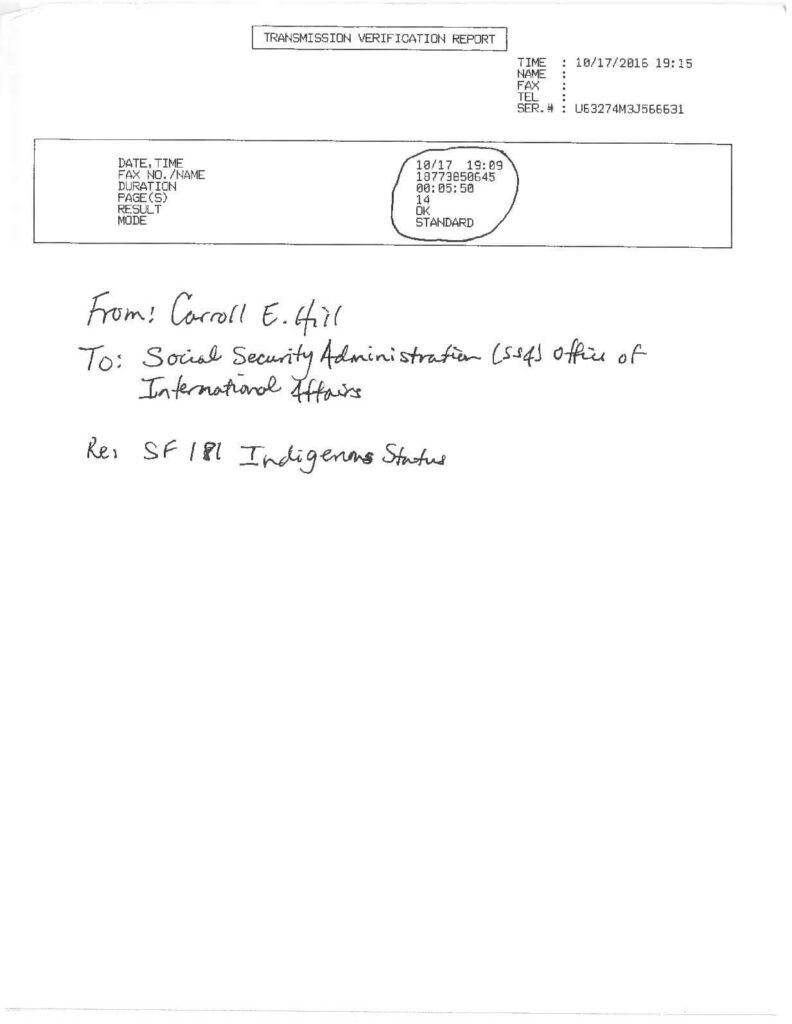 TRANSMISSION VERIFICATION REPORT
TIME : 10/17/2016 19:15
NAME :
FAX :
TEL :
SER.# : U63274M3J566631
DATE,TIME 10/17 19:09
FAX NO./NAME 18773850645
DURATION 00:05:50
PAGE(S) 14
RESULT OK
MODE STANDARD
From: Carroll E. Hill
To: Social Security Administration (SSA) Office of
International Affairs
Re: SF 181 Indigenous Status